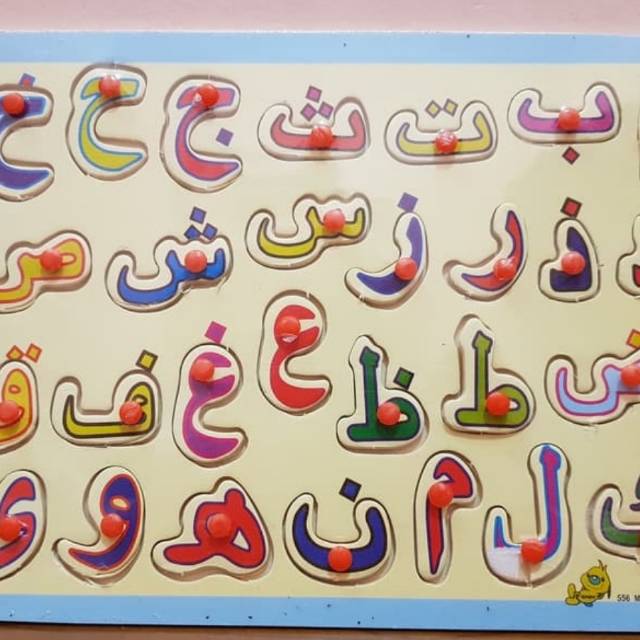 ب ت ث ج ح خ
ذ ر ز س ش ص
ض ط ظ ع غ ف ق
ل م ن ه و ي
556